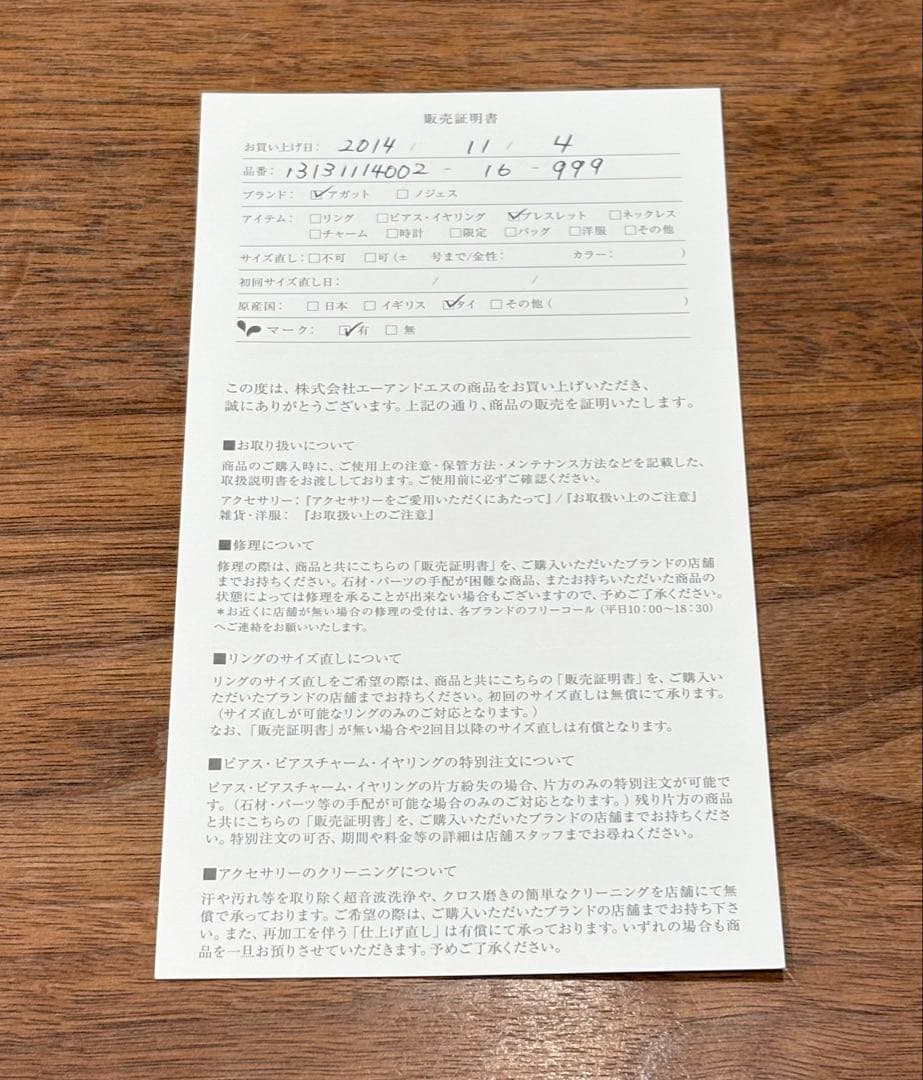 販売証明書
お買い上げ日: 2014 / 11 / 4
品番: 13131114002 - 16 - 999
ブランド: ☑アガット □ノジェス
アイテム: □リング □ピアス・イヤリング ☑ブレスレット □ネックレス
□チャーム □時計 □限定 □バッグ □洋服 □その他
サイズ直し: □不可 □可(± 号まで/金性: カラー: )
初回サイズ直し日: / /
原産国: □日本 □イギリス ☑タイ □その他( )
マーク: ☑有 □無
この度は、株式会社エーアンドエスの商品をお買い上げいただき、
誠にありがとうございます。上記の通り、商品の販売を証明いたします。
■お取り扱いについて
商品のご購入時に、ご使用上の注意・保管方法・メンテナンス方法などを記載した、
取扱説明書をお渡ししております。ご使用前に必ずご確認ください。
アクセサリー:『アクセサリーをご愛用いただくにあたって』/『お取扱い上のご注意』
雑貨・洋服: 『お取扱い上のご注意』
■修理について
修理の際は、商品と共にこちらの「販売証明書」を、ご購入いただいたブランドの店舗
までお持ちください。石材・パーツの手配が困難な商品、またお持ちいただいた商品の
状態によっては修理を承ることが出来ない場合もございますので、予めご了承ください。
*お近くに店舗が無い場合の修理の受付は、各ブランドのフリーコール(平日10:00~18:30)
へご連絡をお願いいたします。
■リングのサイズ直しについて
リングのサイズ直しをご希望の際は、商品と共にこちらの「販売証明書」を、ご購入い
ただいたブランドの店舗までお持ちください。初回のサイズ直しは無償にて承ります。
(サイズ直しが可能なリングのみのご対応となります。)
なお、「販売証明書」が無い場合や2回目以降のサイズ直しは有償となります。
■ピアス・ピアスチャーム・イヤリングの特別注文について
ピアス・ピアスチャーム・イヤリングの片方紛失の場合、片方のみの特別注文が可能で
す。(石材・パーツ等の手配が可能な場合のみのご対応となります。)残り片方の商品
と共にこちらの「販売証明書」を、ご購入いただいたブランドの店舗までお持ちくださ
い。特別注文の可否、期間や料金等の詳細は店舗スタッフまでお尋ねください。
■アクセサリーのクリーニングについて
汗や汚れ等を取り除く超音波洗浄や、クロス磨きの簡単なクリーニングを店舗にて無
償で承っております。ご希望の際は、ご購入いただいたブランドの店舗までお持ち下さ
い。また、再加工を伴う「仕上げ直し」は有償にて承っております。いずれの場合も商
品を一旦お預りさせていただきます。予めご了承ください。